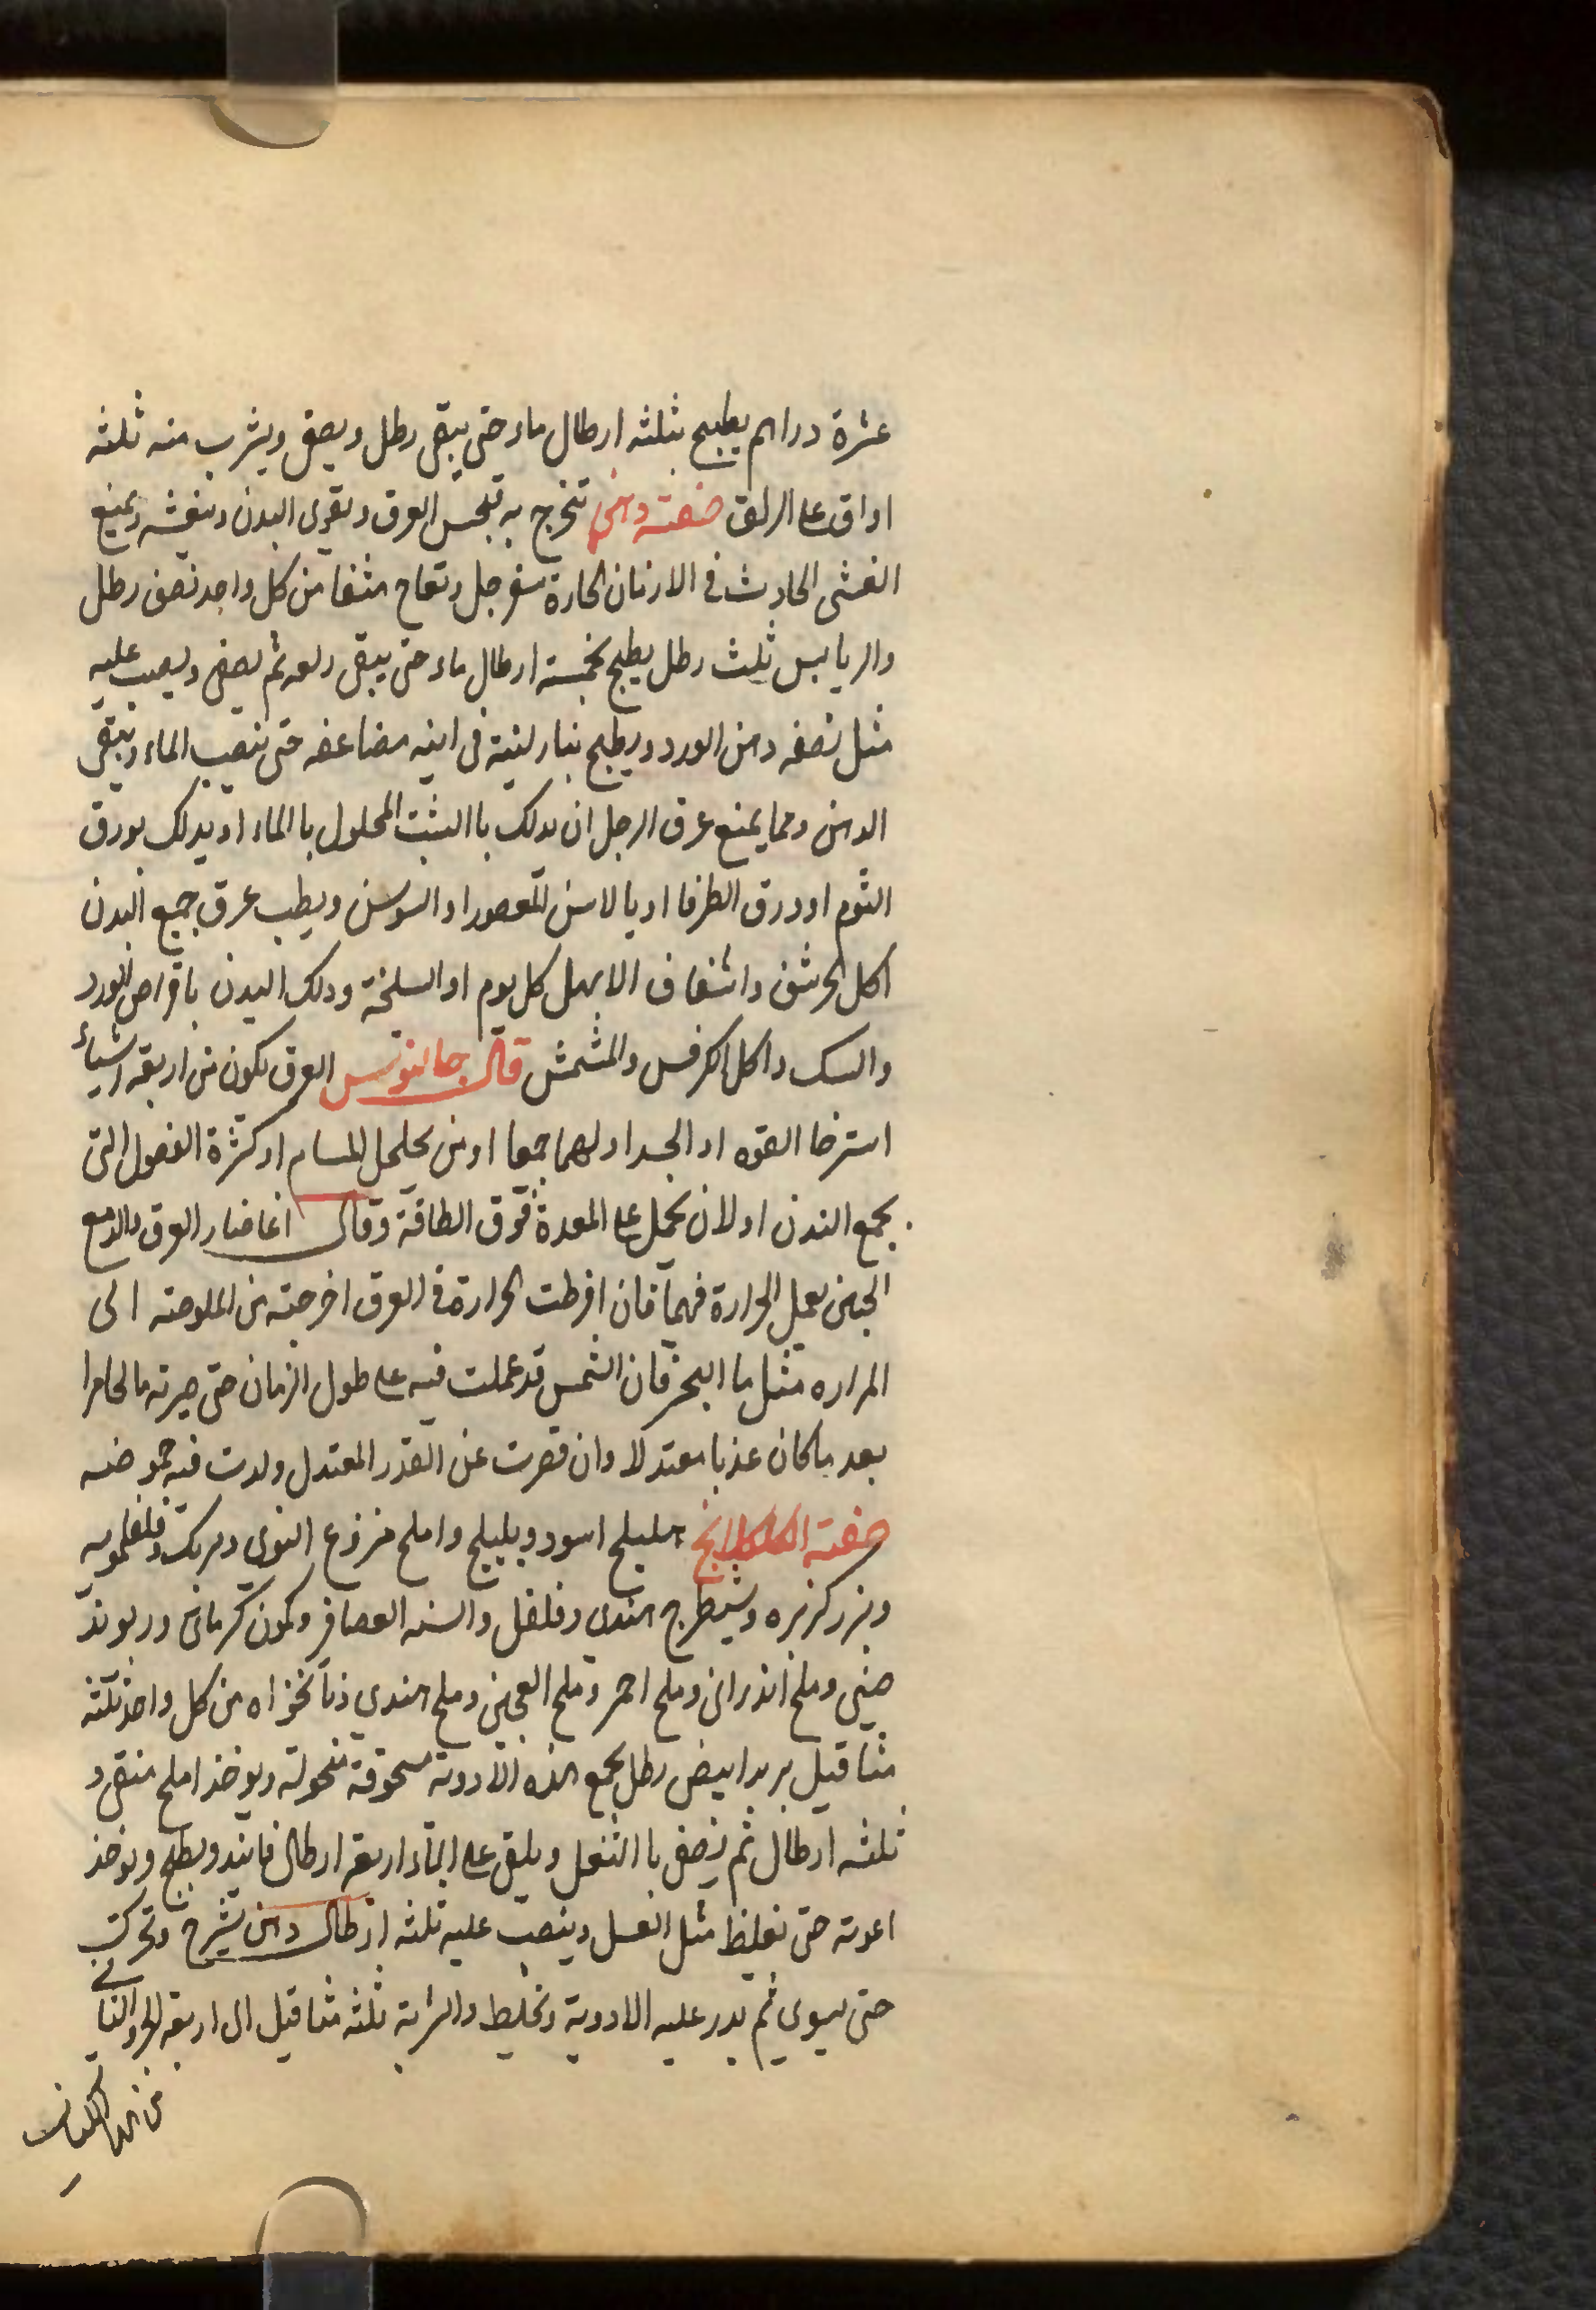 عشرة دراهم يطبح بثلثه ارطال ماء حتى يبقى رطل ويصفى ويشرب منه ثلثه
اواق على الريق صفته دهن تنخرج به تحبس العرق وتقوى البدن وتنعشه ويمنع
الغشى الحادث فى الازمان الحارة سفرجل وتفاح منقا من كل واحد نصف رطل
والريابيس ثلث رطل يطبح بخمسته ارطال ماء حتى يبقى ربعه ثم يصفى ويصب عليه
مثل نصفه دهن الورد ويطبح بنار لينة فى انيه مضاعفه حتى ينصب الماء ويبقى
الدهن ومما يمنع عرق الرجل ان يدلك باالشبث المحلول باالماء او يدلك بورق
الثوم او ورق الطرفا او بالاس المعصور او السوسن ويطيب عرق جميع البدن
اكل الحرشف واشفاف الابهل كل يوم او السلخة ودلك البدن باقراص الورد
والسك واكل الكرفس والمشمش قال جالنوس العرق يكون من اربعة اشياء
استرخا القوه او الجسد او لهما جمعا او من تحلحل المسام او كثرة الفضول التى
يجمع البدن او لان يحمل على المعدة فوق الطاقة وقال انما صار العرق والدمع
الجبين بعمل الحرارة فيهما فان افرطت الحرارة فى العرق اخرجته من الملوحته الى
المراره مثل ما البحر فان الشمس قد عملت فيه على طول الزمان حتى صيرته مالحا مرا
بعد ما كان عذبا معتدلا وان قصرت عن القدر المعتدل ولدت فيه حموضه
صفته الكلكلانج هليلح اسود وبليلح واملح منزوع النوى وبرنك وفلفلمويه
وبزر كزبره وشيطرج هندى وفلفل والسنه العصافر وكمون كرمانى وريوند
صينى وملح انذرانى وملح احمر وملح العجين وملح هندي ذنا نخواه من كل واحد ثلثه
مثاقيل بربد ابيض رطل يجمع هذه الادوية مسحوقة منخولة ويوخذ املح منقى و
ثلثه ارطال ثم يصفى باالثفل ويلقى على الماء اربعة ارطال فانيد ويطبح ويوخذ
اعوته حتى تغليظ مثل العسل وينصب عليه ثلثه ارطال دهن شيرج وتحركت
حتى يسوى ثم يدر عليه الادوية وتخليط والشربة ثلثه مثاقيل الى اربعة